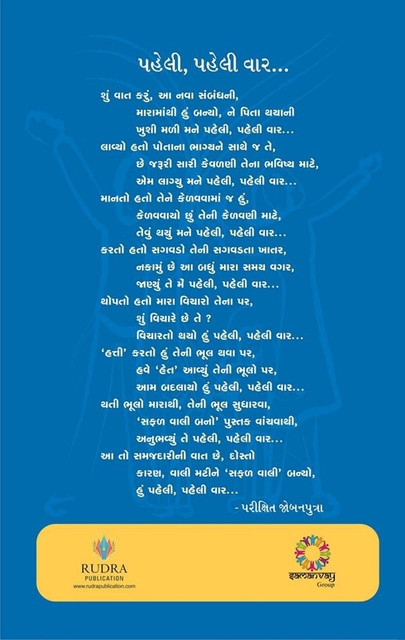 પહેલી, પહેલી વાર...
શું વાત કરું, આ નવા સંબંધની,
મારામાંથી હું બન્યો, ને પિતા થયાની
ખુશી મળી મને પહેલી, પહેલી વાર...
લાવ્યો હતો પોતાના ભાગ્યને સાથે જ તે,
છે જરૂરી સારી કેવળણી તેના ભવિષ્ય માટે,
એમ લાગ્યુ મને પહેલી, પહેલી વાર...
માનતો હતો તેને કેળવવામાં જ હું,
કેળવવાયો છું તેની કેળવણી માટે,
તેવું થયું મને પહેલી, પહેલી વાર...
કરતો હતો સગવડો તેની સગવડતા ખાતર,
નકામું છે આ બધું મારા સમય વગર,
જાણ્યું તે મેં પહેલી, પહેલી વાર...
થોપતો હતો મારા વિચારો તેના પર,
શું વિચારે છે તે ?
વિચારતો થયો હું પહેલી, પહેલી વાર...
‘હત્તી’ કરતો હું તેની ભૂલ થવા પર,
હવે ‘હેત’ આવ્યું તેની ભૂલો પર,
આમ બદલાયો હું પહેલી, પહેલી વાર...
થતી ભૂલો મારાથી, તેની ભૂલ સુધારવા,
‘સફળ વાલી બનો’ પુસ્તક વાંચવાથી,
અનુભવ્યું તે પહેલી, પહેલી વાર...
આ તો સમજદારીની વાત છે, દોસ્તો
કારણ, વાલી મટીને ‘સફળ વાલી’ બન્યો,
હું પહેલી, પહેલી વાર...
- પરીક્ષિત જોબનપુત્રા
RUDRA
PUBLICATION
www.rudrapublication.com
samanvay
Group